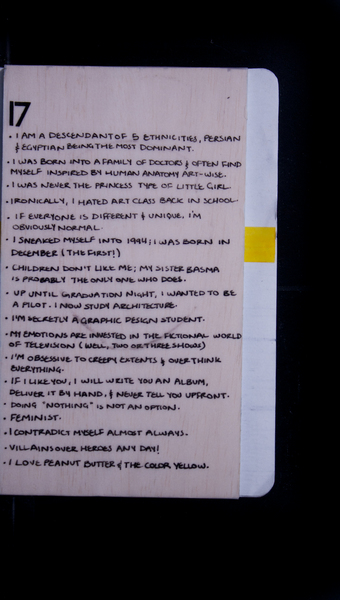 17
• I AM A DESCENDANT OF 5 ETHNICITIES, PERSIAN
& EGYPTIAN BEING THE MOST DOMINANT.
• I WAS BORN INTO A FAMILY OF DOCTORS & OFTEN FIND
MYSELF INSPIRED BY HUMAN ANATOMY ART-WISE.
• I WAS NEVER THE PRINCESS TYPE OF LITTLE GIRL.
IRONICALLY, I HATED ART CLASS BACK IN SCHOOL.
• IF EVERYONE IS DIFFERENT & UNIQUE, I'M
OBVIOUSLY NORMAL.
• I SNEAKED MYSELF INTO 1994; I WAS BORN IN
DECEMBER (THE FIRST!)
• CHILDREN DON'T LIKE ME; MY SISTER BASMA
IS PROBABLY THE ONLY ONE WHO DOES.
• UP UNTIL GRADUATION NIGHT, I WANTED TO BE
A PILOT. I NOW STUDY ARCHITECTURE.
• I'M SECRETLY A GRAPHIC DESIGN STUDENT.
• MY EMOTIONS ARE INVESTED IN THE FICTIONAL WORLD
OF TELEVISION (WELL, TWO OR THREE SHOWS)
• I'M OBSESSIVE TO CREEPY EXTENTS & OVERTHINK
EVERYTHING.
• IF I LIKE YOU, I WILL WRITE YOU AN ALBUM,
DELIVER IT BY HAND, & NEVER TELL YOU UPFRONT.
• DOING "NOTHING" IS NOT AN OPTION.
• FEMINIST.
• I CONTRADICT MYSELF ALMOST ALWAYS.
• VILLAINS OVER HEROES ANY DAY!
• I LOVE PEANUT BUTTER & THE COLOR YELLOW.